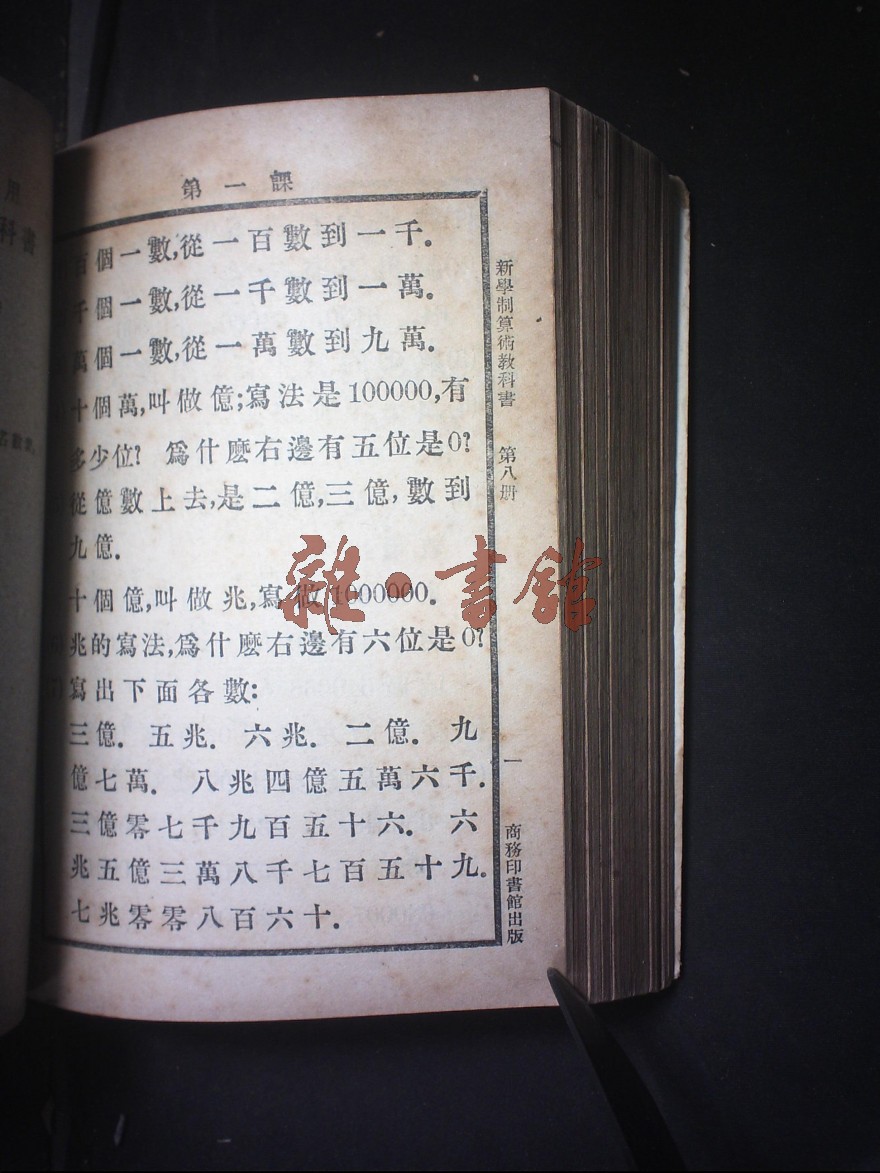 第一課
百個一數,從一百數到一千.
千個一數,從一千數到一萬.
萬個一數,從一萬數到九萬.
十個萬,叫做億;寫法是100000,有
多少位? 爲什麽右邊有五位是0?
從億數上去,是二億,三億,數到
九億.
十個億,叫做兆,寫做1000000.
兆的寫法,爲什麽右邊有六位是0?
寫出下面各數:
三億. 五兆. 六兆. 二億. 九
億七萬. 八兆四億五萬六千.
三億零七千九百五十六. 六
兆五億三萬八千七百五十九.
七兆零零八百六十.
新學制算術教科書 第八册
一
商務印書館出版
雜·書館
用
科書